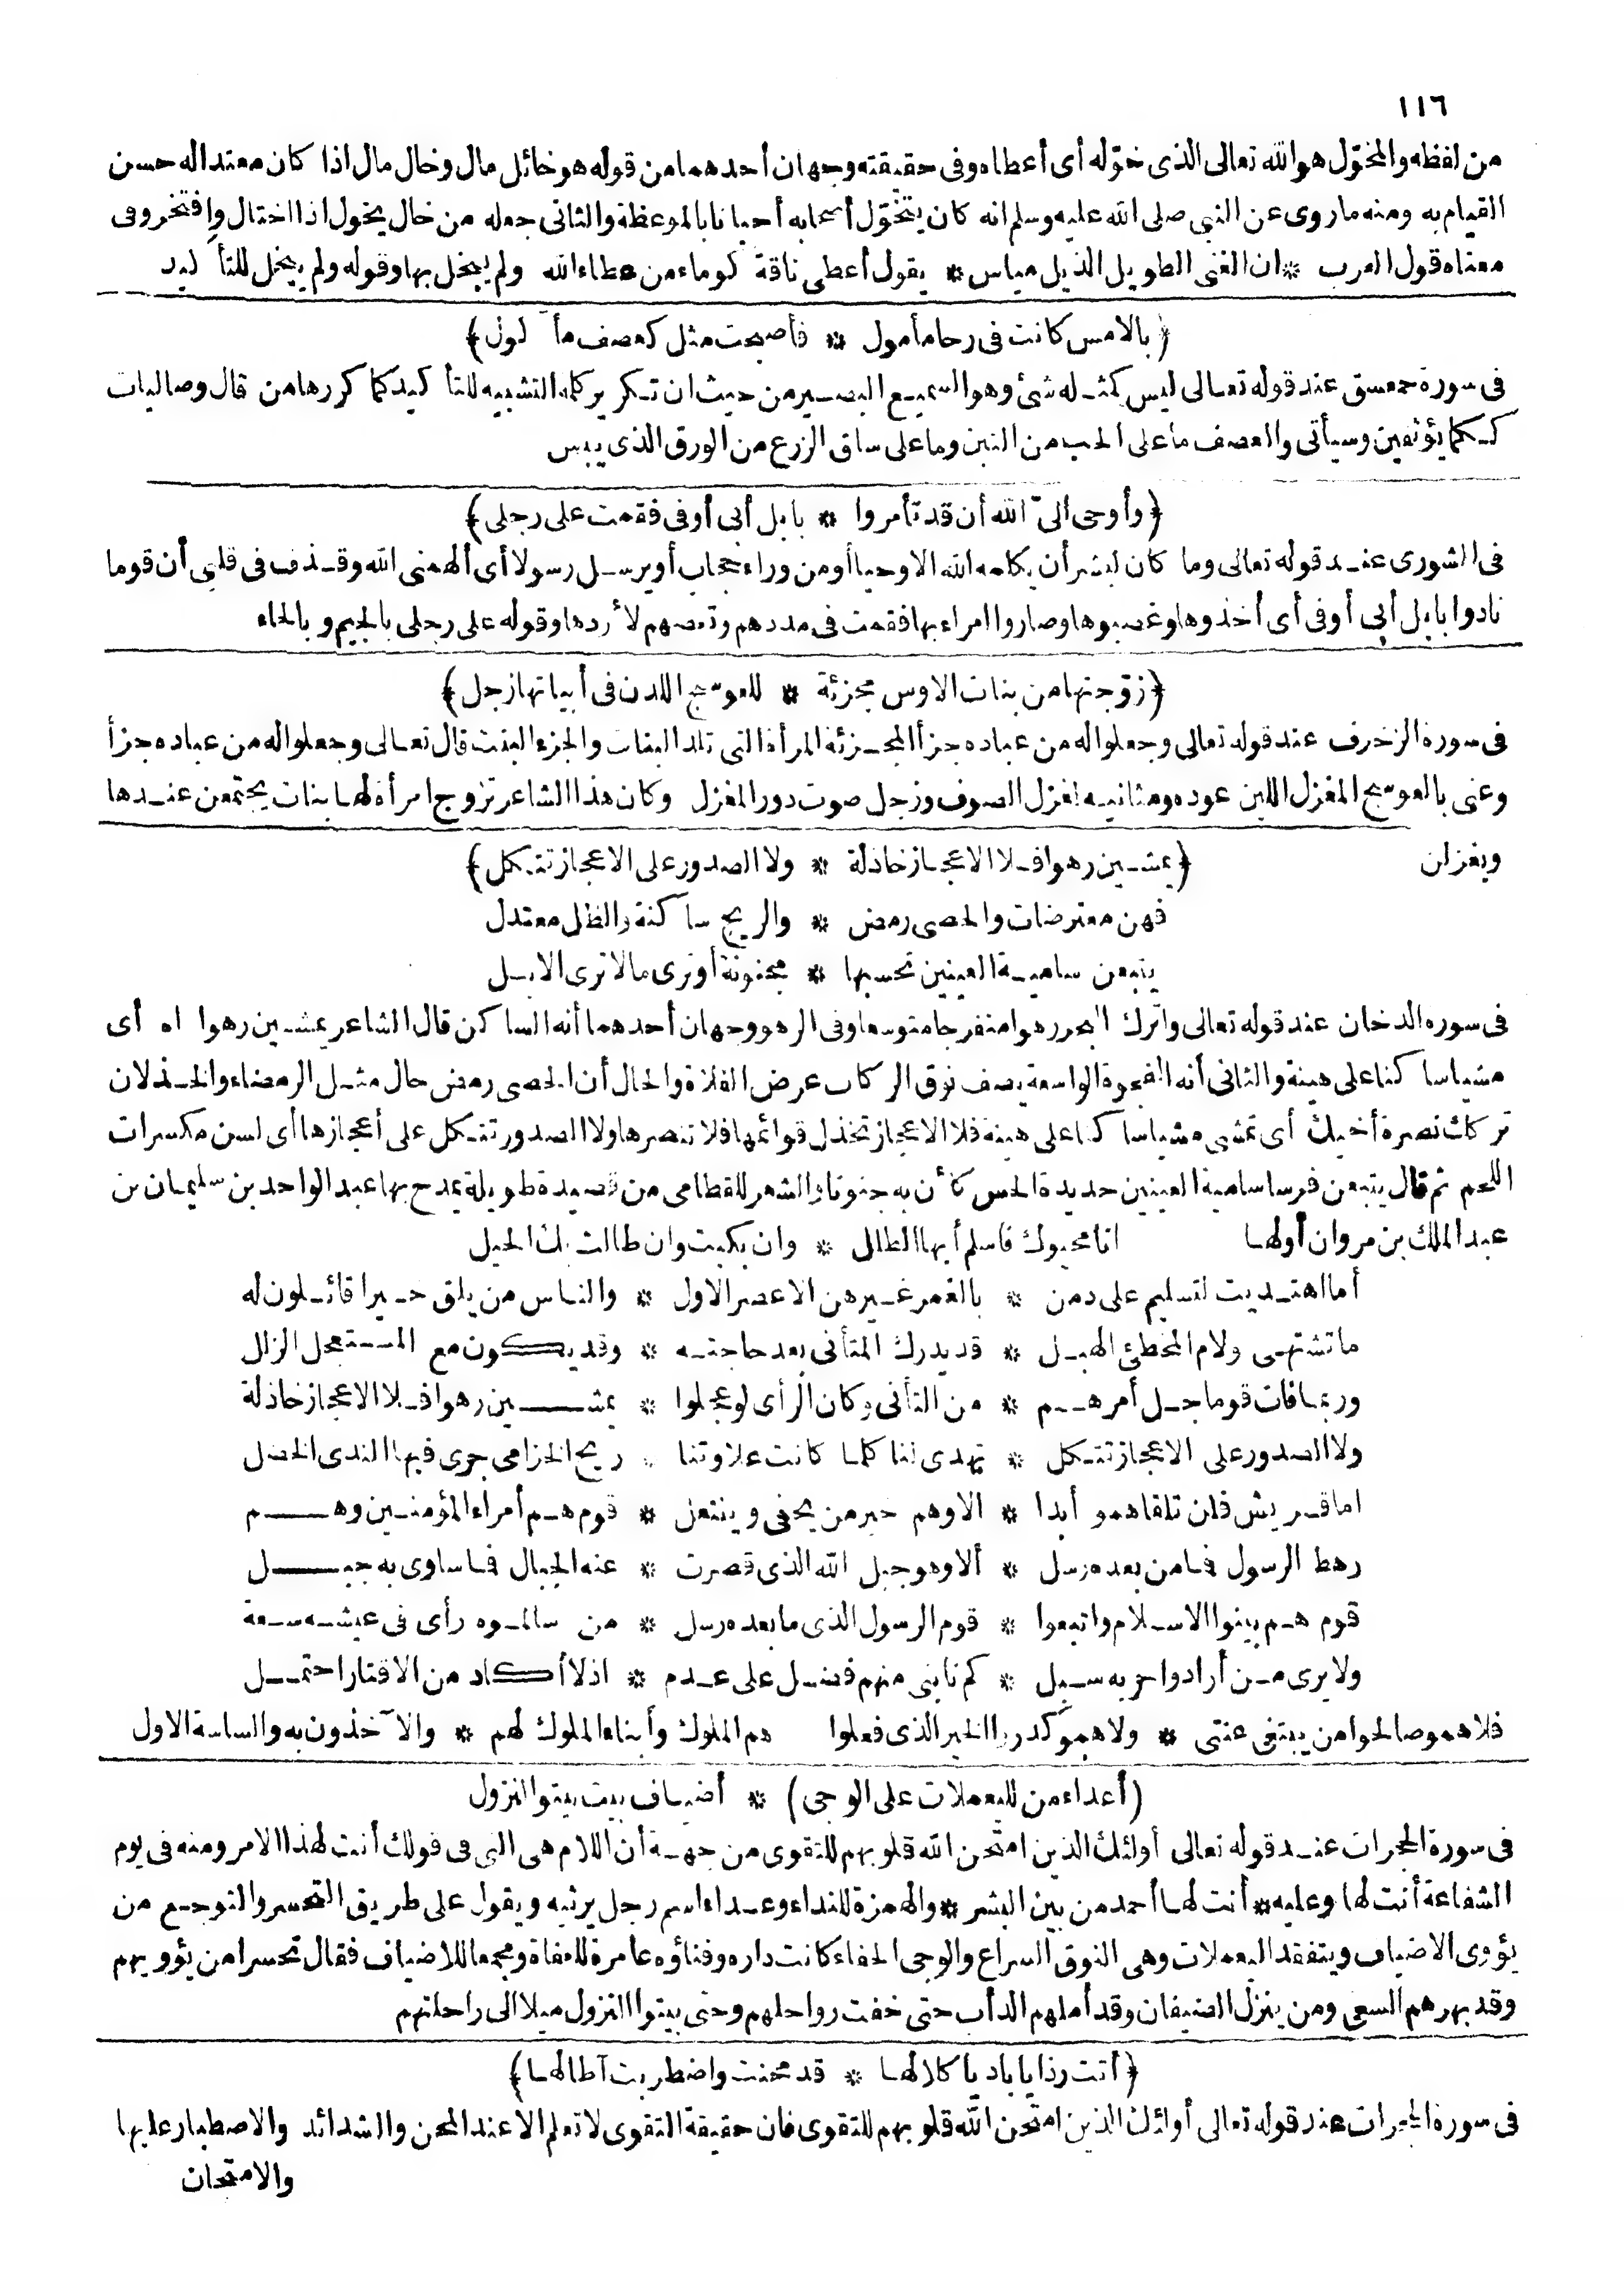 ١١٦
من لفظه والمخوّل هو الله تعالى الذى خوّله أى أعطاه وفى حقيقته وجهان أحدهما من قوله هو خائل مال وخال مال اذا كان معتدا له حسن
القيام به ومنه ما روى عن النبى صلى الله عليه وسلم انه كان يتخوّل أصحابه أحيانا بالموعظة والثانى جعله من خال يخول اذا اختال وافتخر وفى
معناه قول العرب * ان الغنى الطويل الذيل مياس * يقول أعطى ناقة كوماء من عطاء الله ولم يبخل بها وقوله ولم يبخل للتأكيد
﴿بالامس كانت فى رحا مأمول * فأصبحت مثل كعصف مأكول﴾
فى سورة حمعسق عند قوله تعالى ليس كمثله شئ وهو السميع البصير من حيث ان تكرير كلمة التشبيه للتأكيد كما كررها من قال وصاليات
ككما يؤثفين وسيأتى والعصف ما على الحب من التبن وما على ساق الزرع من الورق الذى يبس
﴿وأوحى الىّ الله أن قد تأمروا * بابل أبى أوفى فقمت على رجلى﴾
فى الشورى عند قوله تعالى وما كان لبشر أن يكلمه الله الا وحيا أو من وراء حجاب أو يرسل رسولا أى ألهمنى الله وقذف فى قلبى أن قوما
نادوا بابل أبى أوفى أى أخذوها وغصبوها وصاروا امراء بها فقمت فى مددهم وتعصبهم لأردها وقوله على رجلى بالجيم وبالحاء
﴿زوّجتها من بنات الاوس مجزئة * للعوسج اللدن فى أبياتها زجل﴾
فى سورة الزخرف عند قوله تعالى وجعلوا له من عباده جزأ المجزئة المرأة التى تلد البنات والجزء البنت قال تعالى وجعلوا له من عباده جزأ
وعنى بالعوسج المغزل اللين عوده ومثانيه لغزل الصوف وزجل صوت دور المغزل وكان هذا الشاعر تزوج امرأة لها بنات يجتمعن عندها
ويغزلن ﴿يمشين رهوا فلا الاعجاز خاذلة * ولا الصدور على الاعجاز تتكل﴾
فهن معترضات والحصى رمض * والريح ساكنة والظل معتدل
يتبعن سامية العينين تحسبها * مجنونة أو ترى ما لا ترى الابل
فى سورة الدخان عند قوله تعالى واترك البحر رهوا منفرجا متوسعا وفى الرهو وجهان أحدهما أنه الساكن قال الشاعر يمشين رهوا اه أى
مشيا ساكنا على هينة والثانى أنه الفجوة الواسعة يصف نوق الركاب عرض الفلاة والحال أن الحصى رمض حال مثل الرمضاء والخذلان
تركك نصرة أخيك أى تمشى مشيا ساكنا على هينة فلا الاعجاز تخذل قوائمها فلا تنصرها ولا الصدور تتكل على أعجازها أى لسن مكسرات
اللحم ثم قال يتبعن فرسا سامية العينين حديدة الحس كأن به جنونا والشعر للقطامى من قصيدة طويلة يمدح بها عبد الواحد بن سليمان بن
عبد الملك بن مروان أولها انا محيوك فاسلم أيها الطلل * وان بكيت وان طالت بك الحيل
أما اهتديت لتسليم على دمن * بالغمر غيرهن الاعصر الاول * والناس من يلق خيرا قائلون له
ما تشتهى ولام المخطئ الهبل * قد يدرك المتأنى بعد حاجته * وقد يكون مع المستعجل الزلل
وربما فات قوما جل أمرهم * من التأنى وكان الرأى لو عجلوا * يمشين رهوا فلا الاعجاز خاذلة
ولا الصدور على الاعجاز تتكل * تهدى لنا كلما كانت علاوتنا * ريح الخزامى جرى فيها الندى الخضل
اما قريش فلن تلقاهمو أبدا * الا وهم خير من يحفى وينتعل * قوم هم أمراء المؤمنين وهم
رهط الرسول فما من بعده رسل * ألا وهو جبل الله الذى قصرت * عنه الجبال فما ساوى به جبل
قوم هم بينوا الاسلام واتبعوا * قوم الرسول الذى ما بعده رسل * من سالموه رأى فى عيشه سعة
ولا يرى من أرادوا حربه سبل * كم نابنى منهم فضل على عدم * اذ لا أكاد من الاقتار احتمل
فلا همو صالحوا من يبتغى عنتى * ولا همو كدروا الخير الذى فعلوا هم الملوك وأبناء الملوك لهم * والآخذون به والساسة الاول
(أعداء من لليعملات على الوجى) * أضياف بيت بيتوا لنزول
فى سورة الحجرات عند قوله تعالى أولئك الذين امتحن الله قلوبهم للتقوى من جهة أن اللام هى التى فى قولك أنت لهذا الامر ومنه فى يوم
الشفاعة أنت لها وعليه * أنت لها أحمد من بين البشر * والهمزة للنداء وعداء اسم رجل يرثيه ويقول على طريق التحسر والتوجع من
يؤوى الاضياف ويتفقد اليعملات وهى النوق السراع والوجى الحفاء كانت داره وفناؤه عامرة للعفاة ومجمعا للاضياف فقال تحسرا من يؤويهم
وقد بهرهم السعى ومن ينزل الضيفان وقد أملهم الدأب حتى خفت رواحلهم وحتى بيتوا لنزول ميلا الى راحلتهم
﴿أتت رذايا باديا كلالها * قد محنت واضطربت آطالها﴾
فى سورة الحجرات عند قوله تعالى أولئك الذين امتحن الله قلوبهم للتقوى فان حقيقة التقوى لا تعلم الا عند المحن والشدائد والاصطبار عليها
والامتحان